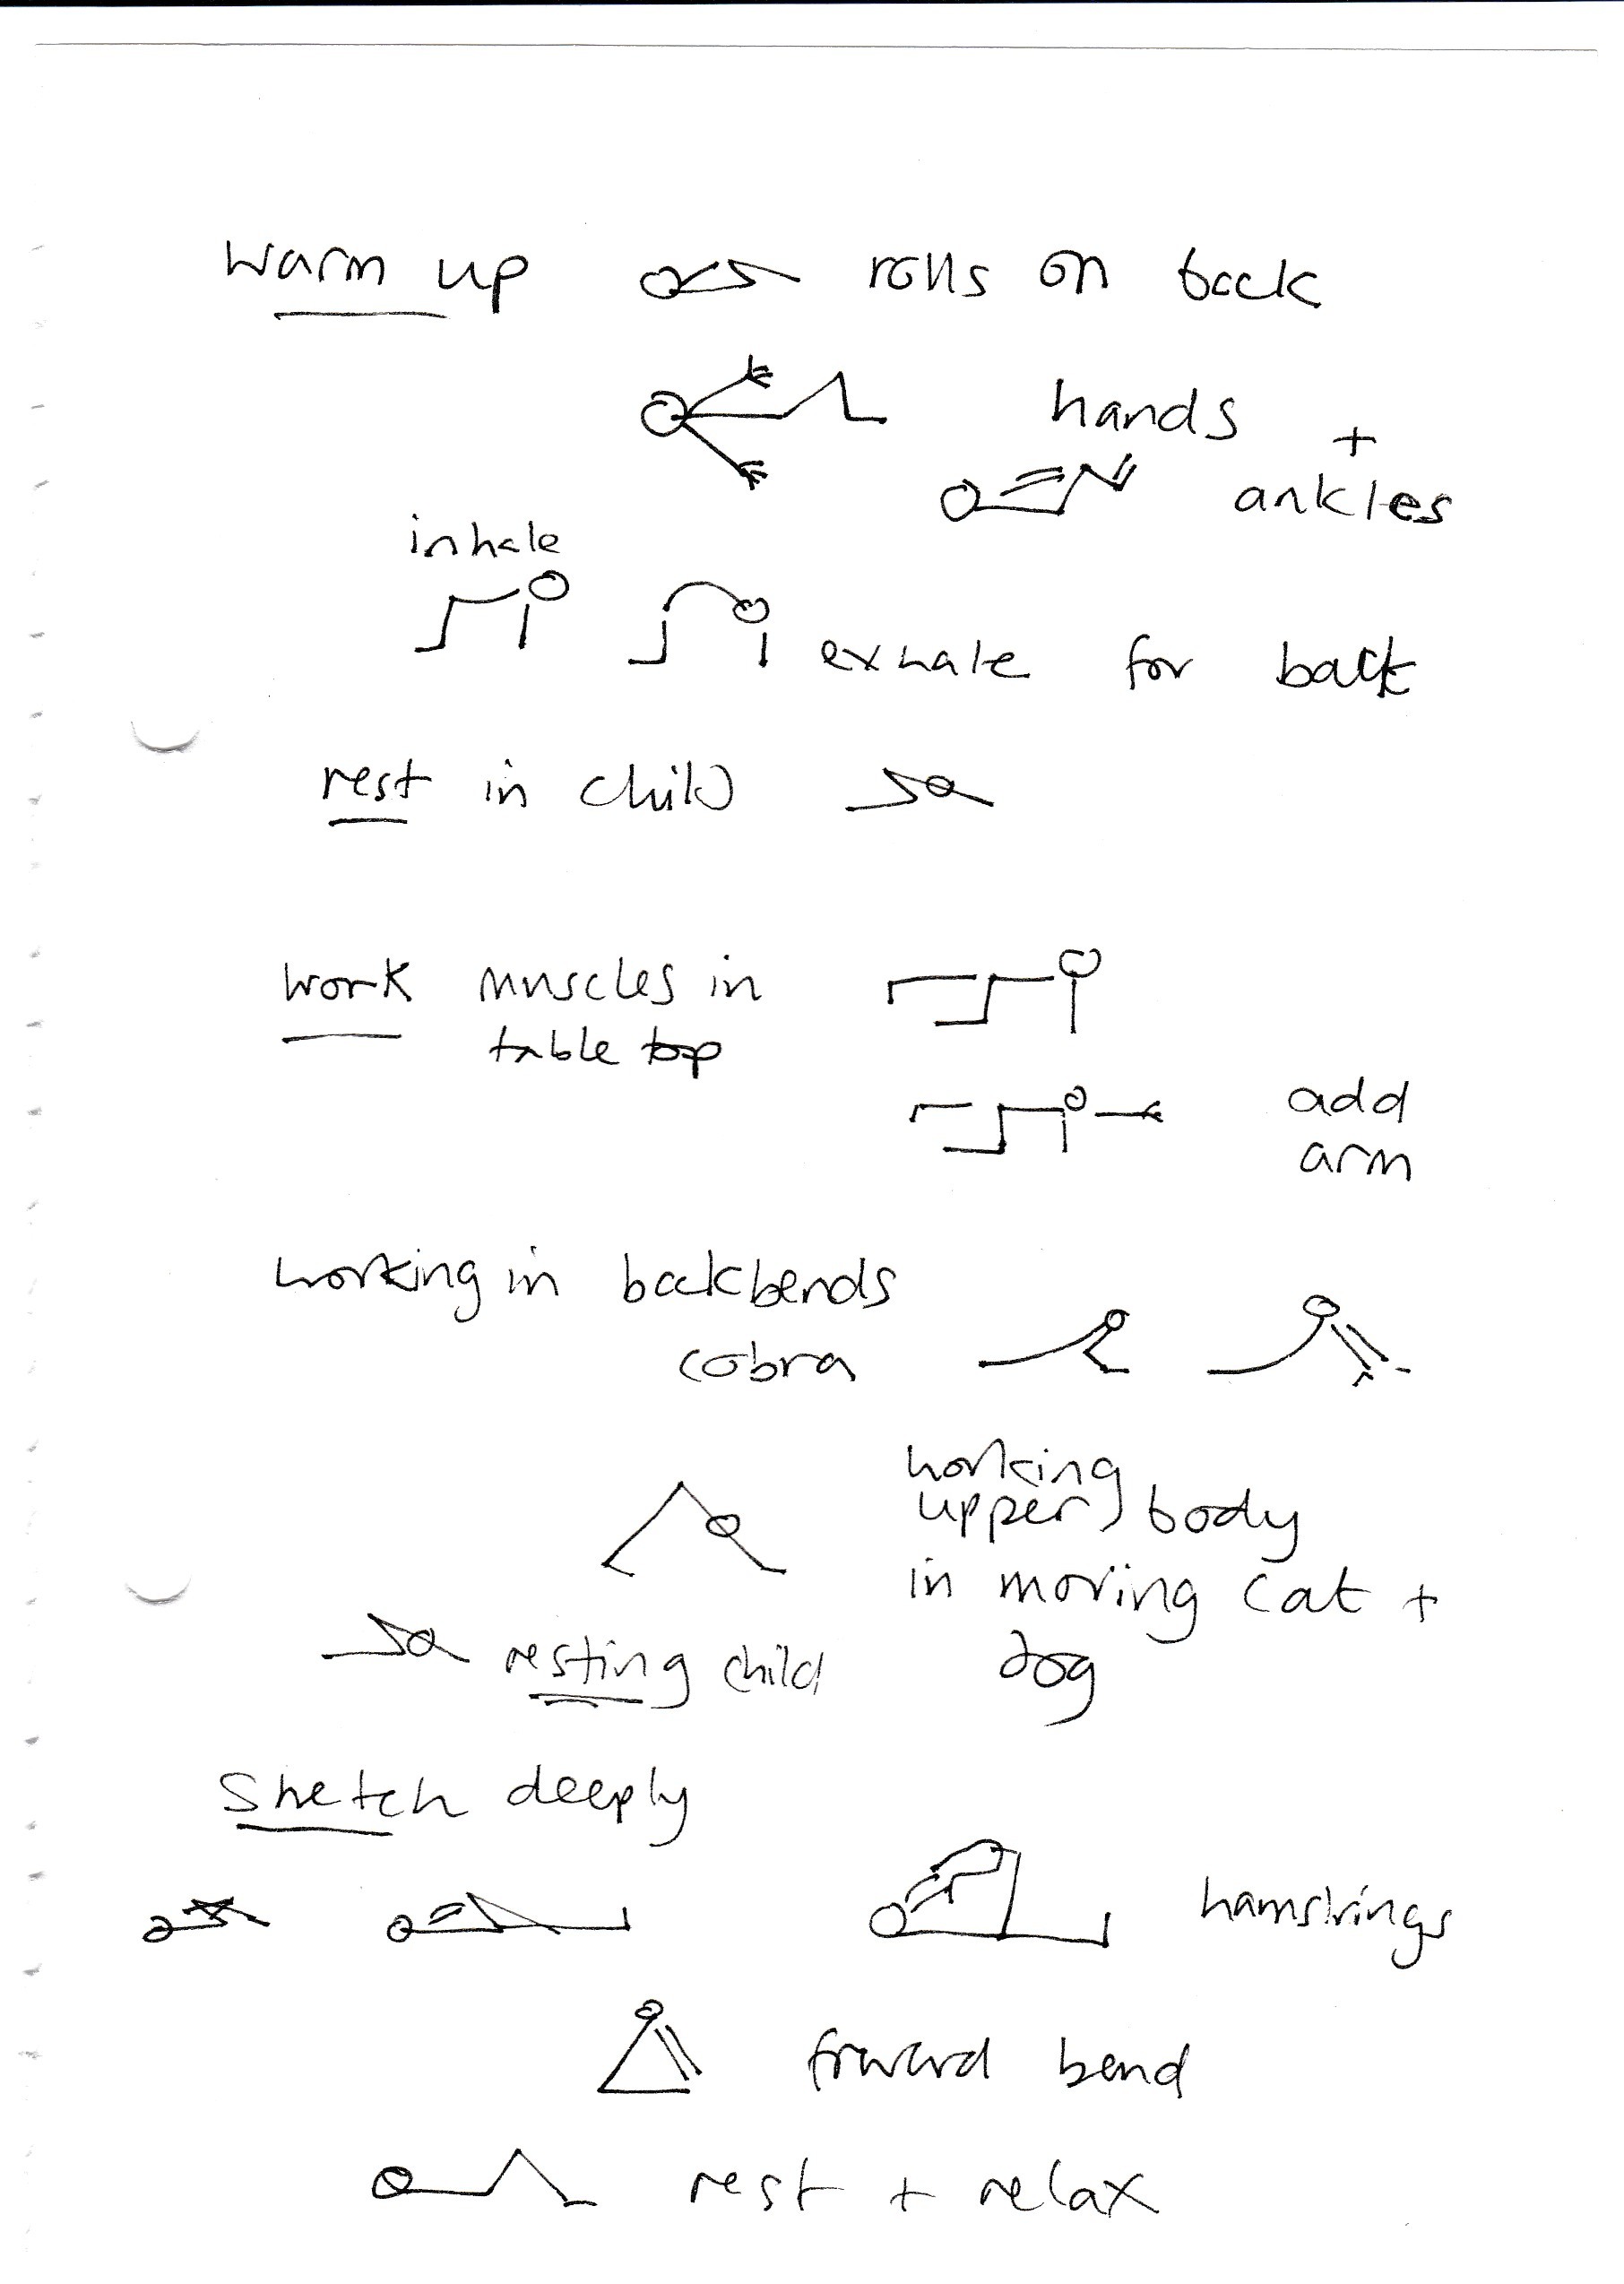 warm up rolls on back
hands +
ankles
inhale
exhale for back
rest in child
work muscles in
table top
add
arm
working in backbends
cobra
working
upper body
in moving cat +
dog
resting child
Stretch deeply
hamstrings
forward bend
rest + relax